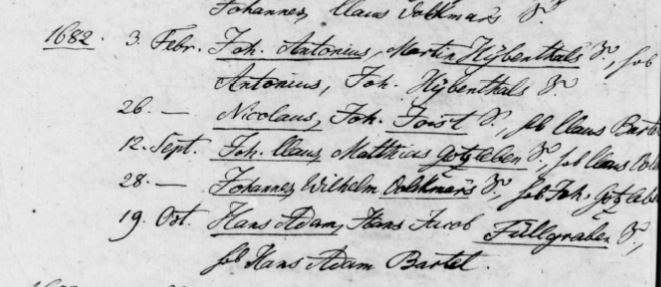 Johannes, Claus Volkmars S.
1682. 3. Febr. Joh. Antonius, Martin Hÿbenthals S., sub
Antonius, Joh. Hÿbenthals S.
26. — Nicolaus, Joh. Foist S., sub Claus Barte
12. Sept. Joh. Claus, Matthias Gotzleben S., sub Claus Vol
28. — Johannes, Wilhelm Volckmars S., sub Joh. Gotzleb
19. Oct. Hans Adam, Hans Jacob Füllgraben S.,
sub Hans Adam Bartel.